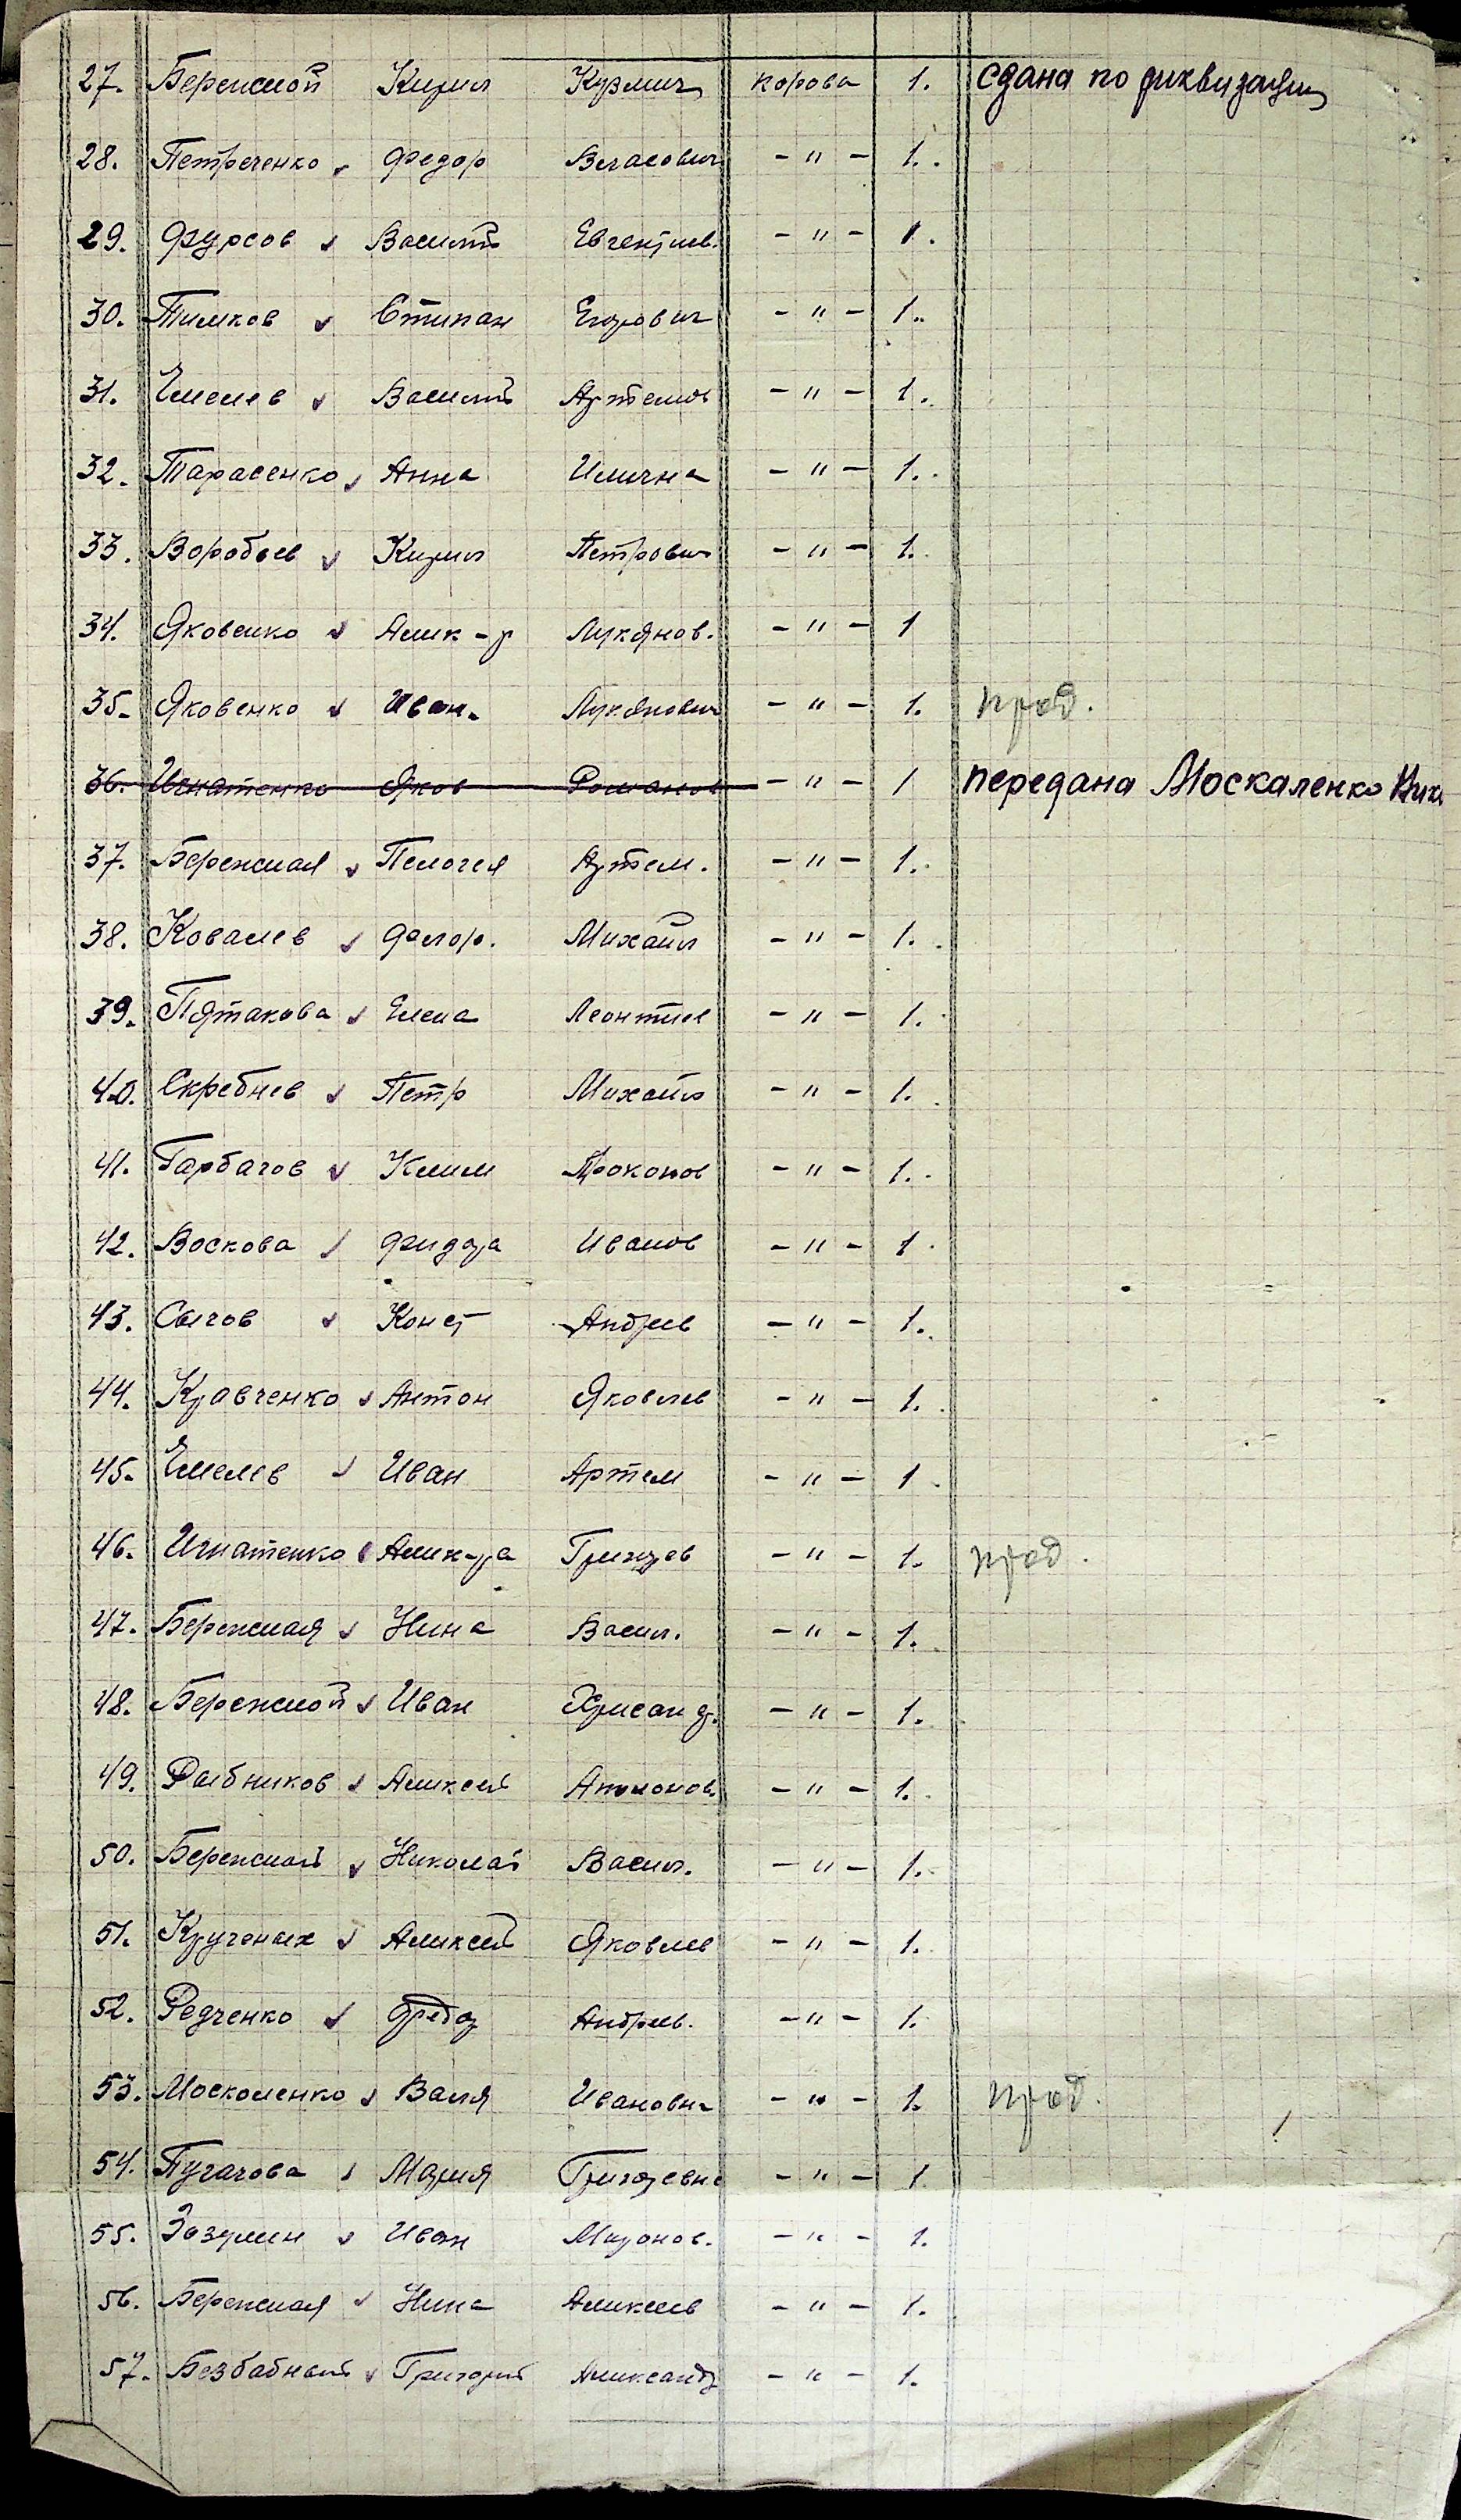 27. Бережной Кирил Кузмич корова 1. сдана по риквизации
28. Петреченко Федор Власович - " - 1.
29. Фурсов Василий Евгентиев. - " - 1.
30. Тимков Стипан Егорович - " - 1.
31. Емелев Василий Артемов - " - 1.
32. Тарасенко Анна Илична - " - 1.
33. Воробьев Кирил Петрович - " - 1.
34. Яковенко Алик-р Лукянов. - " - 1
35. Яковенко Иван. Лукянович - " - 1. прод.
36. Игнатенко Яков Романов - " - 1 передана Москаленко Ник
37. Бережная Пелогея Артем. - " - 1.
38. Ковалев Флор. Михайл - " - 1.
39. Пятакова Елена Леонтиев - " - 1.
40. Скребнев Петр Михайл - " - 1.
41. Гарбачов Клим Прокопов - " - 1.
42. Воскова Фидора Иванов - " - 1.
43. Сычов Конст Андрев - " - 1.
44. Кравченко Антон Яковлев - " - 1.
45. Емелев Иван Артем - " - 1.
46. Игнатенко Алик-ра Григорев - " - 1. прод.
47. Бережная Нина Васил. - " - 1.
48. Бережной Иван Хрисанф. - " - 1.
49. Рыбников Аликсей - " - 1.
50. Бережной Николай Васил. - " - 1.
51. Крученых Аликсей Яковлев - " - 1.
52. Редченко Федор Андрев. - " - 1.
53. Москоленко Валя Ивановна - " - 1. прод.
54. Пугачова Мария Григоревна - " - 1
55. Зозулин Иван Миронов. - " - 1.
56. Бережная Нина Аликсев - " - 1.
57. Безбабный Григорий Александр - " - 1.